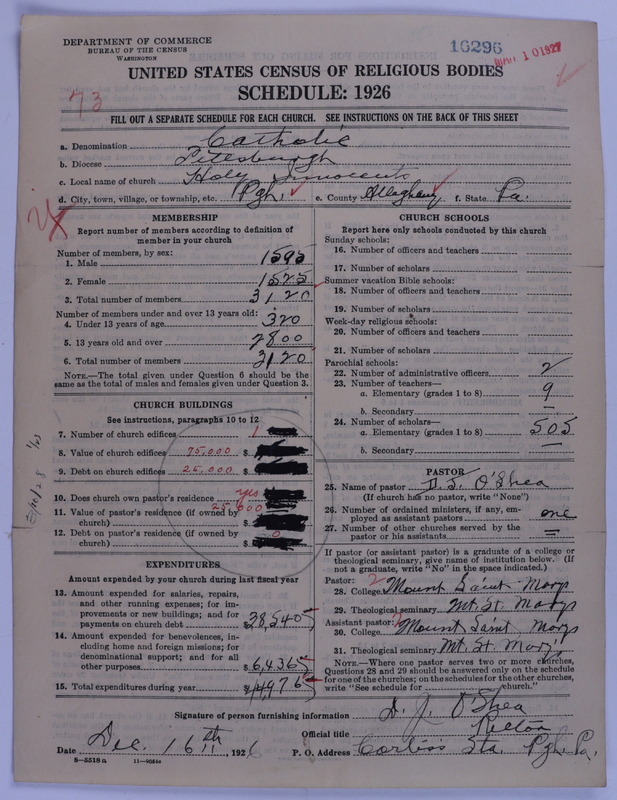 DEPARTMENT OF COMMERCE
BUREAU OF THE CENSUS
WASHINGTON
16296
MAR 10 1927
UNITED STATES CENSUS OF RELIGIOUS BODIES
SCHEDULE: 1926
73
FILL OUT A SEPARATE SCHEDULE FOR EACH CHURCH. SEE INSTRUCTIONS ON THE BACK OF THIS SHEET
a. Denomination Catholic
b. Diocese Pittsburgh
c. Local name of church Holy Innocents
d. City, town, village, or township, etc. Pgh. e. County Allegheny f. State Pa.
MEMBERSHIP
Report number of members according to definition of
member in your church
Number of members, by sex:
1. Male 1595
2. Female 1525
3. Total number of members 3120
Number of members under and over 13 years old:
4. Under 13 years of age 320
5. 13 years old and over 2800
6. Total number of members 3120
NOTE.—The total given under Question 6 should be the
same as the total of males and females given under Question 3.
CHURCH BUILDINGS
See instructions, paragraphs 10 to 12
7. Number of church edifices 1
8. Value of church edifices 75,000 $
9. Debt on church edifices 25,000 $
10. Does church own pastor's residence yes
11. Value of pastor's residence (if owned by
church) 25,000 $
12. Debt on pastor's residence (if owned by
church) 0 $
EXPENDITURES
Amount expended by your church during last fiscal year
13. Amount expended for salaries, repairs,
and other running expenses; for im-
provements or new buildings; and for
payments on church debt $38,540
14. Amount expended for benevolences, in-
cluding home and foreign missions; for
denominational support; and for all
other purposes $6,436
15. Total expenditures during year $44976
CHURCH SCHOOLS
Report here only schools conducted by this church
Sunday schools:
16. Number of officers and teachers
17. Number of scholars
Summer vacation Bible schools:
18. Number of officers and teachers
19. Number of scholars
Week-day religious schools:
20. Number of officers and teachers
21. Number of scholars
Parochial schools:
22. Number of administrative officers 2
23. Number of teachers—
a. Elementary (grades 1 to 8) 9
b. Secondary —
24. Number of scholars—
a. Elementary (grades 1 to 8) 505
b. Secondary —
PASTOR
25. Name of pastor D. J. O'Shea
(If church has no pastor, write "None")
26. Number of ordained ministers, if any, em-
ployed as assistant pastors one
27. Number of other churches served by the
pastor or his assistants
If pastor (or assistant pastor) is a graduate of a college or
theological seminary, give name of institution below. (If
not a graduate, write "No" in the space indicated.)
Pastor:
28. College Mount Saint Marys
29. Theological seminary Mt. St. Marys
Assistant pastor:
30. College Mount Saint Marys
31. Theological seminary Mt. St. Mary's
NOTE.—Where one pastor serves two or more churches,
Questions 28 and 29 should be answered only on the schedule
for one of the churches; on the schedules for the other churches,
write "See schedule for church."
Signature of person furnishing information D. J. O'Shea
Official title Rector
Date Dec. 16th, 1926 P. O. Address Corliss Sta. Pgh. Pa.
8—5518a 11—9054